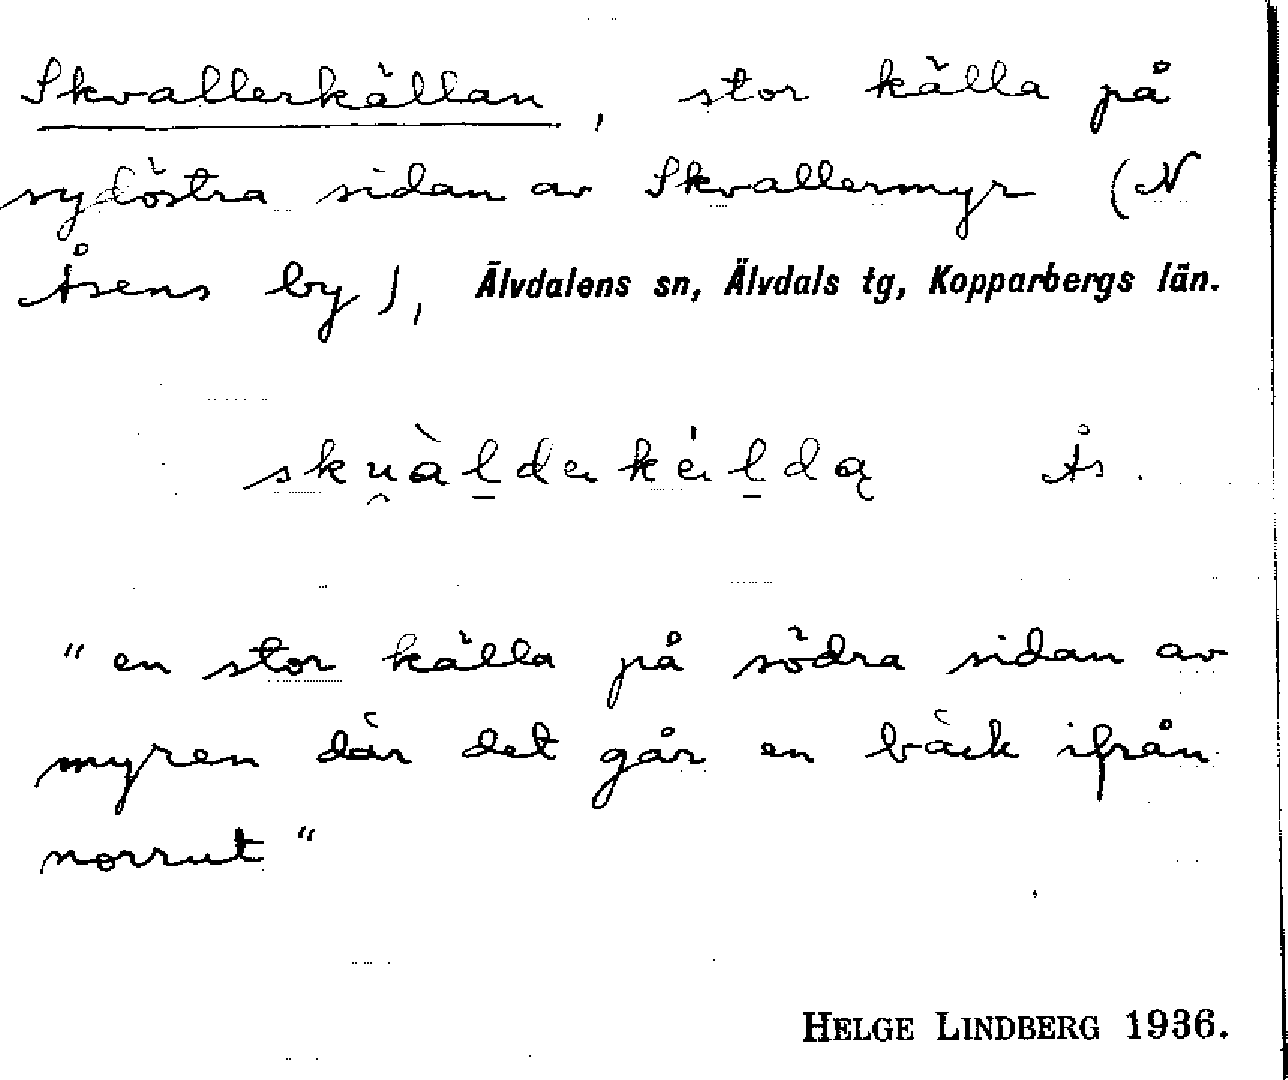 Skvallerkällan, stor källa på
sydöstra sidan av Skvallermyr (N
Åsens by), Älvdalens sn, Älvdals tg, Kopparbergs län.
sku̯àl̠derkèl̠dą Ås.
"en stor källa på södra sidan av
myren där det går en bäck ifrån
norrut"
HELGE LINDBERG 1936.